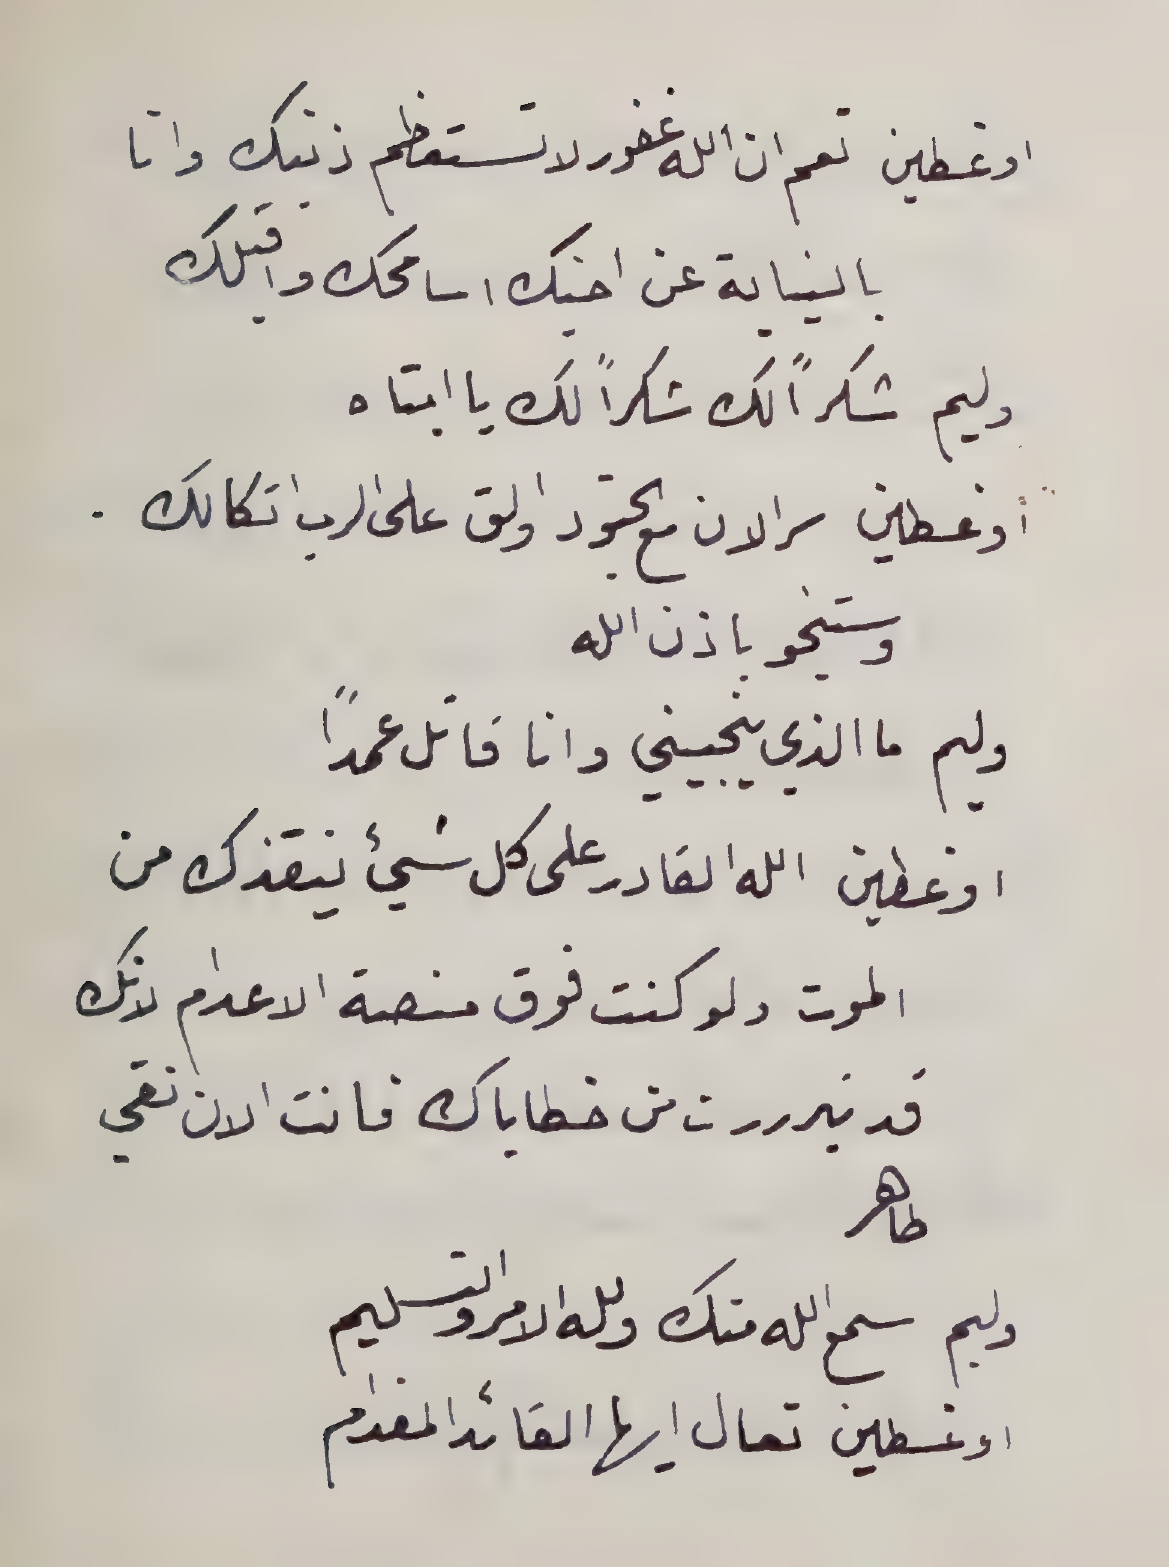 اوغسطين نعم ان الله غفور لا تستعظم ذنبك وانا
بالنيابة عن اخيك اسامحك واقبلك
وليم شكراً لك شكراً لك يا ابتاه
أوغسطين سر الان مع الجنود والق على الرب اتكالك .
وستنجو باذن الله
وليم ما الذي ينجيني وانا قاتل عمداً
اوغسطين الله القادر على كل شيئ ينقذك من
الموت ولو كنت فوق منصة الاعدام لانك
قد تبررت من خطاياك فانت الان نقي
طاهر
وليم سمع الله منك ولله الامر والتسليم
اوغسطين تعال ايها القائد المقدام